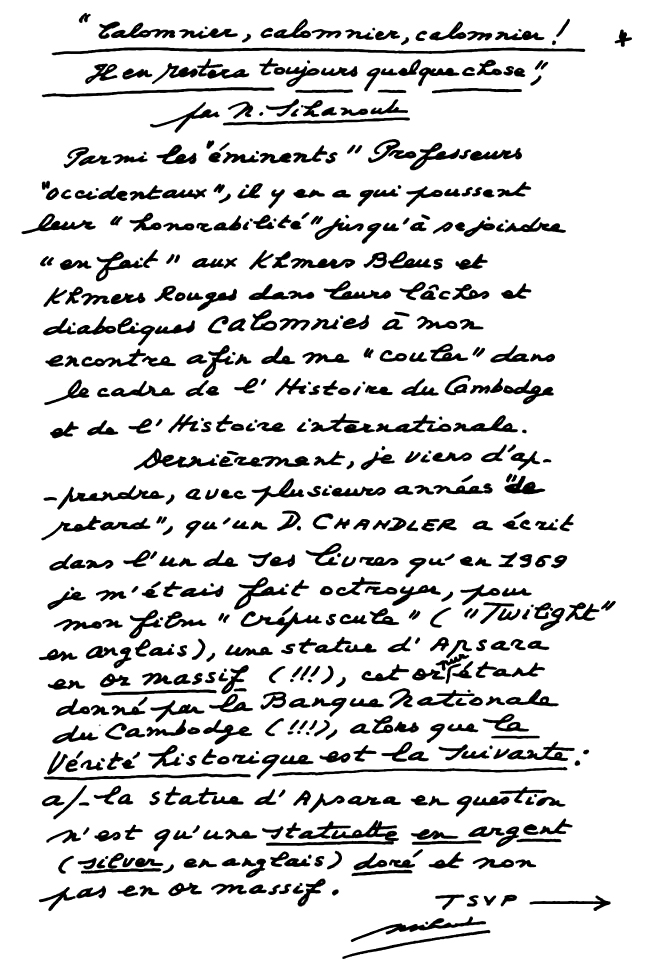 "Calomnier, calomnier, calomnier! *
Il en restera toujours quelque chose",
par N. Sihanouk
Parmi les "éminents" Professeurs
"occidentaux", il y en a qui poussent
leur "honorabilité" jusqu'à se joindre
"en fait" aux Khmers Bleus et
Khmers Rouges dans leurs lâches et
diaboliques calomnies à mon
encontre afin de me "couler" dans
le cadre de l'Histoire du Cambodge
et de l'Histoire internationale.
Dernièrement, je viens d'ap-
-prendre, avec plusieurs années "de
retard", qu'un D. CHANDLER a écrit
dans l'un de ses livres qu'en 1969
je m'étais fait octroyer, pour
mon film "Crépuscule" ("Twilight"
en anglais), une statue d'Apsara
en or massif (!!!), cet or pur étant
donné par la Banque Nationale
du Cambodge (!!!), alors que la
Vérité historique est la suivante:
a/- la statue d'Apsara en question
n'est qu'une statuette en argent
(silver, en anglais) doré et non
pas en or massif.
TSVP →